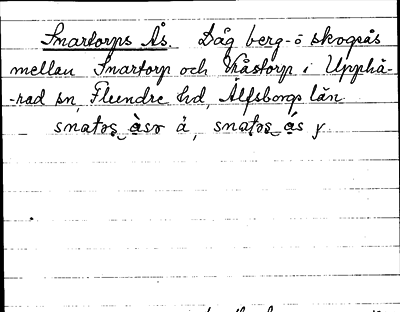 Snartorps Ås. Låg berg- o skogsås
mellan Snartorp och Kråstorp i Upphä-
-rad sn, Flundre hd, Älfsborgs län
snatos àsɷ ä, snatos ás y